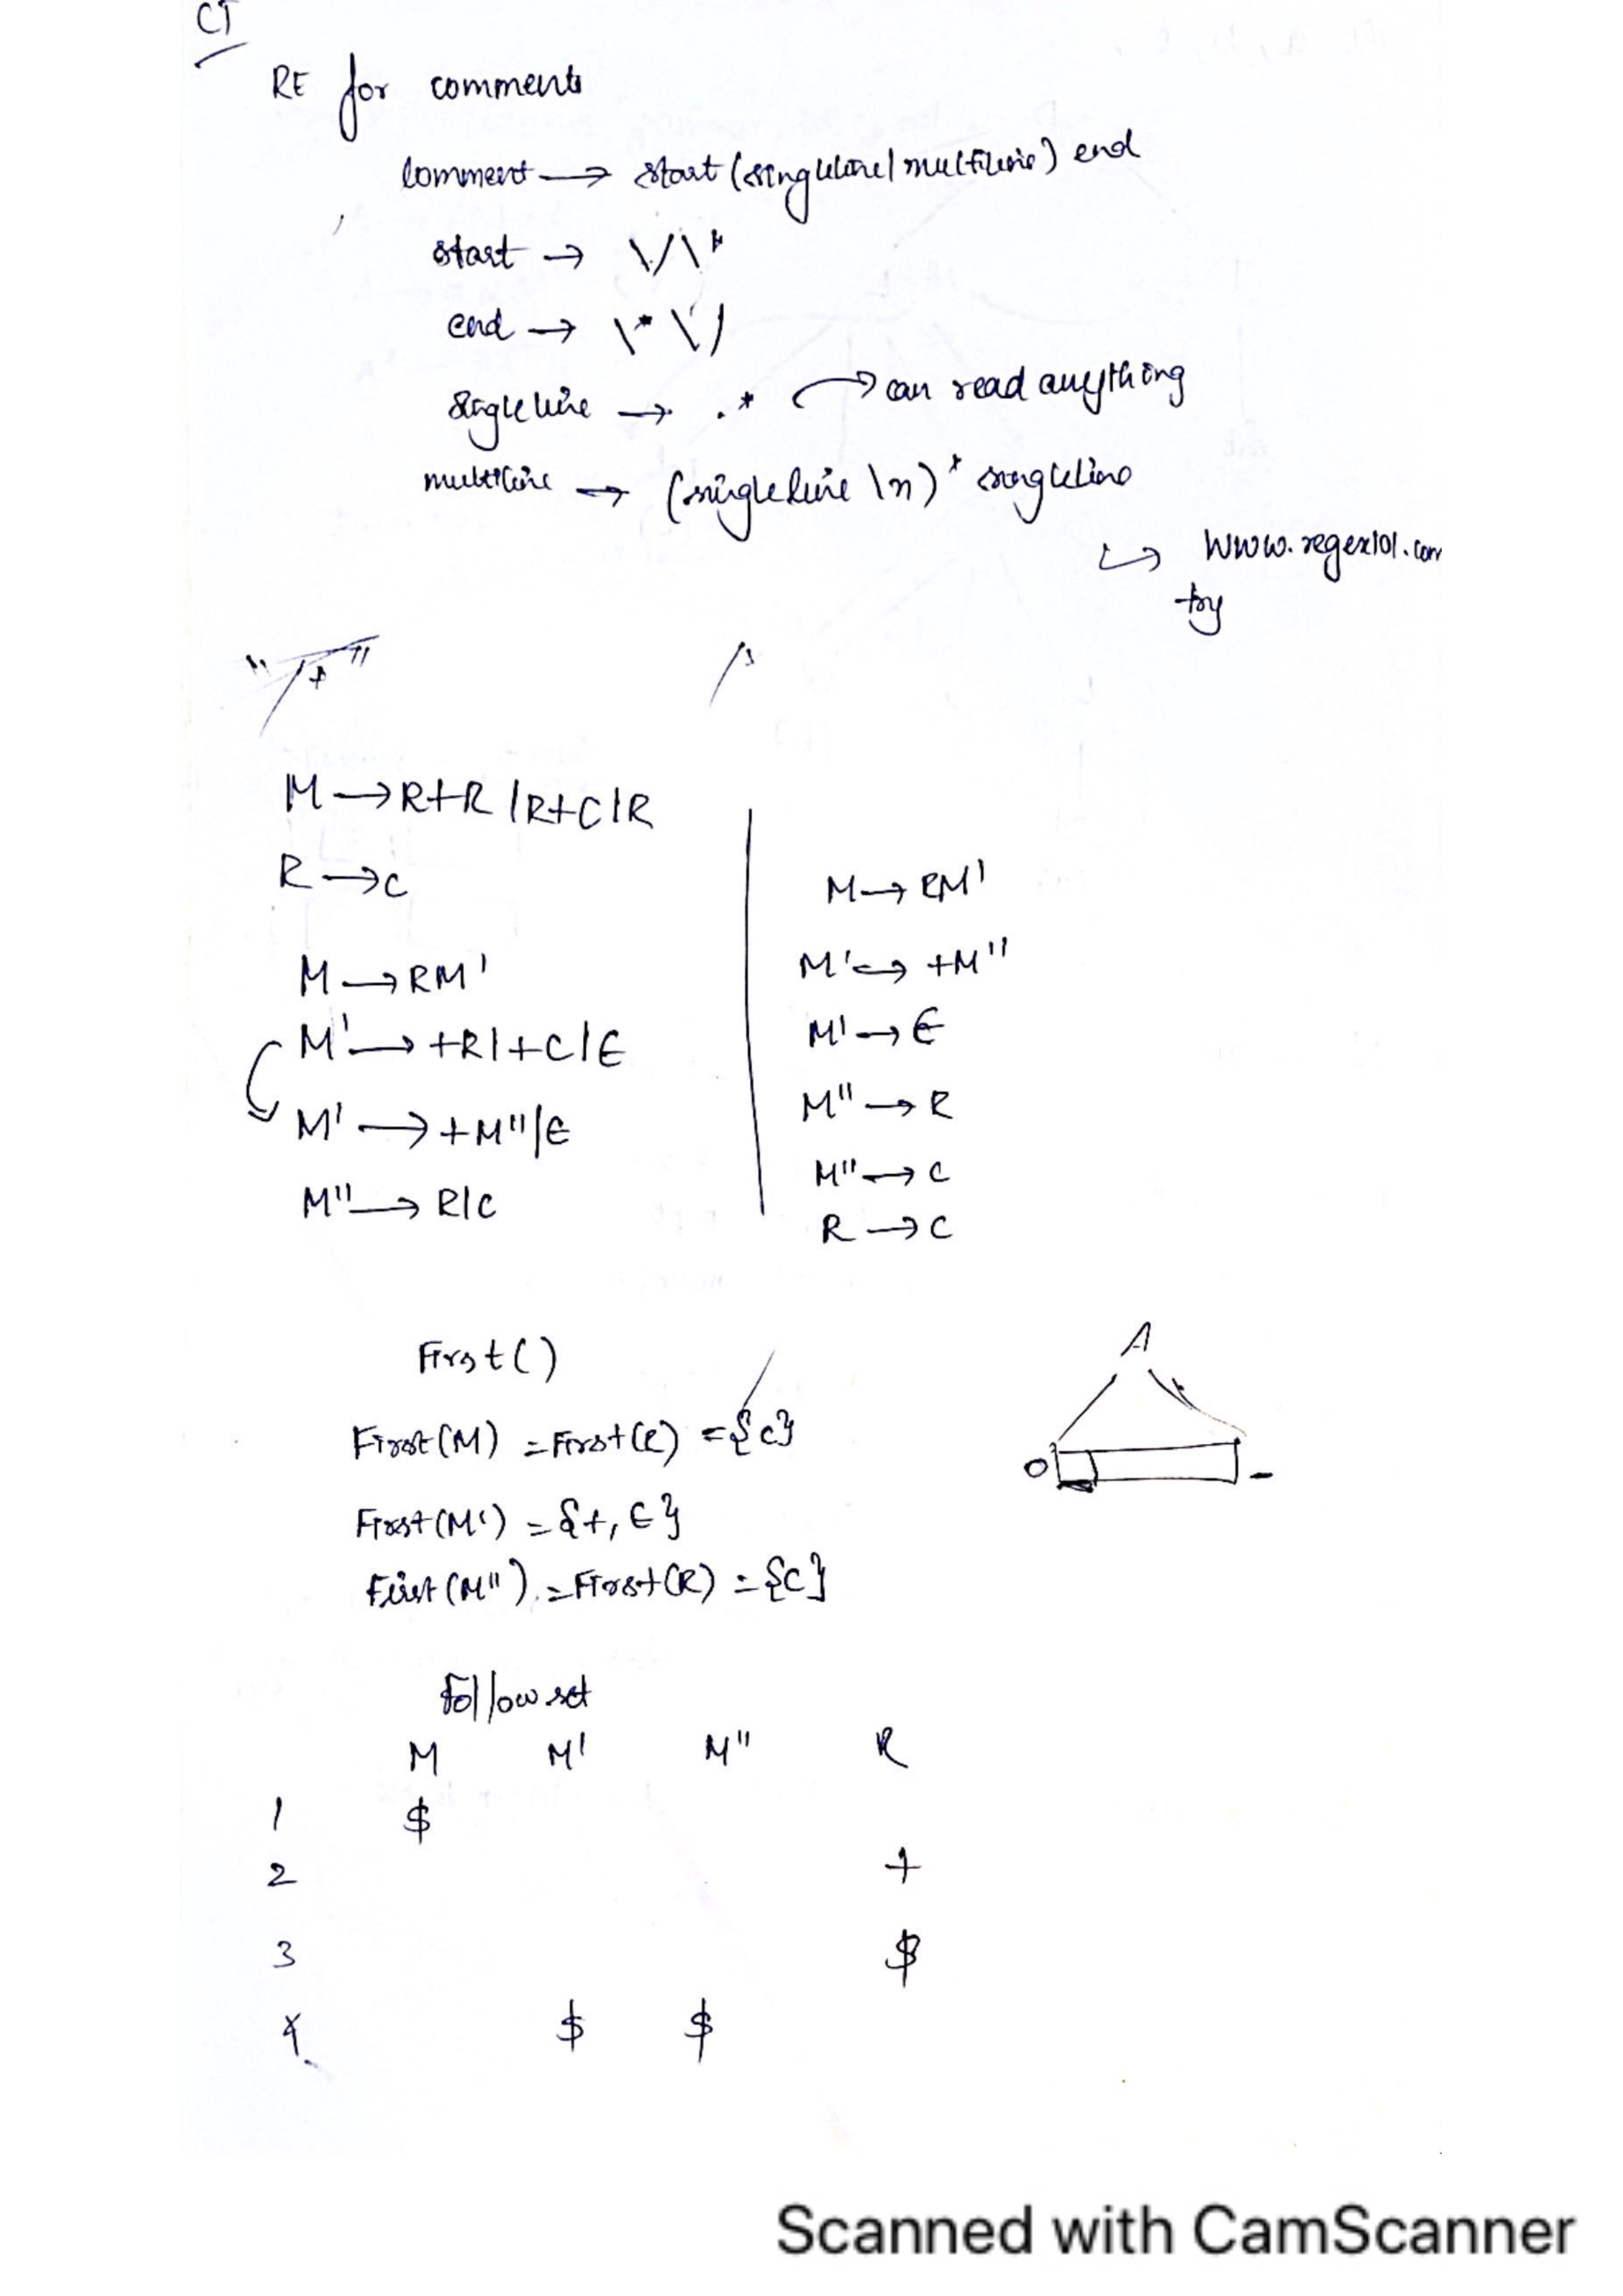 CT
RE for comments
comment → start (singleline | multiline) end
start → \/\*
end → \*\/
singleline → .* → can read anything
multiline → (singleline \n)* singleline
↪ www.regex101.com
try
"/*"
M → R+R | R+C | R
R → C
M → RM'
M' → +R | +C | ϵ
M' → +M'' | ϵ
M'' → R | C
M → RM'
M' → +M''
M' → ϵ
M'' → R
M'' → C
R → C
First()
First(M) = First(R) = {c}
First(M') = {+, ϵ}
First(M'') = First(R) = {C}
A
Follow set
M M' M'' R
1 $
2 +
3 $
4 $ $
Scanned with CamScanner